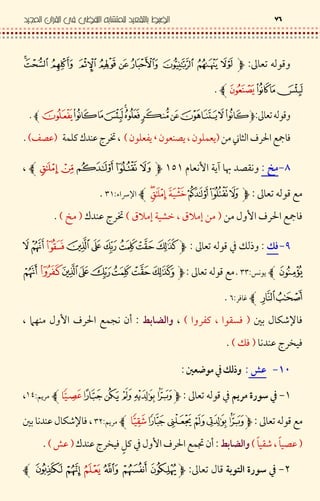 ٧٦ الضبط بالتقعيد للمتشابه اللفظي في القرآن المجيد
وقوله تعالى: ﴿ لَوْلَا يَنْهَاهُمُ الرَّبَّانِيُّونَ وَالْأَحْبَارُ عَنْ قَوْلِهِمُ الْإِثْمَ وَأَكْلِهِمُ السُّحْتَ
لَبِئْسَ مَا كَانُوا يَصْنَعُونَ ﴾ .
وقوله تعالى: ﴿كَانُوا لَا يَتَنَاهَوْنَ عَنْ مُنْكَرٍ فَعَلُوهُ لَبِئْسَ مَا كَانُوا يَفْعَلُونَ ﴾ .
فاجمع الحرف الثاني من (يعملون ، يصنعون ، يفعلون ) ، تخرج عندك كلمة (عصف) .
٨- مخ : ونقصد بها آية الأنعام ١٥١ ﴿ وَلَا تَقْتُلُوا أَوْلَادَكُمْ مِنْ إِمْلَاقٍ ﴾ ،
مع قوله تعالى : ﴿ وَلَا تَقْتُلُوا أَوْلَادَكُمْ خَشْيَةَ إِمْلَاقٍ ﴾ الإسراء: ٣١ .
فاجمع الحرف الأول من ( من إملاق ، خشية إملاق ) تخرج عندك ( مخ ) .
٩- فك : وذلك في قوله تعالى : ﴿ كَذَلِكَ حَقَّتْ كَلِمَتُ رَبِّكَ عَلَى الَّذِينَ فَسَقُوا أَنَّهُمْ لَا
يُؤْمِنُونَ ﴾ يونس: ٣٣ . مع قوله تعالى: ﴿ وَكَذَلِكَ حَقَّتْ كَلِمَتُ رَبِّكَ عَلَى الَّذِينَ كَفَرُوا أَنَّهُمْ
أَصْحَابُ النَّارِ ﴾ غافر: ٦ .
فالإشكال بين ( فسقوا ، كفروا ) ، والضابط : أن نجمع الحرف الأول منهما ،
فيخرج عندنا ( فك ) .
١٠- عش : وذلك في موضعين :
١- في سورة مريم في قوله تعالى : ﴿ وَبَرًّا بِوَالِدَيْهِ وَلَمْ يَكُنْ جَبَّارًا عَصِيًّا ﴾ مريم: ١٤،
مع قوله تعالى : ﴿ وَبَرًّا بِوَالِدَتِي وَلَمْ يَجْعَلْنِي جَبَّارًا شَقِيًّا ﴾ مريم: ٣٢ ، فالإشكال عندنا بين
( عصياً ، شقياً ) والضابط : أن تجمع الحرف الأول في كلٍ فيخرج عندك ( عش ) .
٢- في سورة التوبة قال تعالى: ﴿ يُهْلِكُونَ أَنْفُسَهُمْ وَاللَّهُ يَعْلَمُ إِنَّهُمْ لَكَاذِبُونَ ﴾